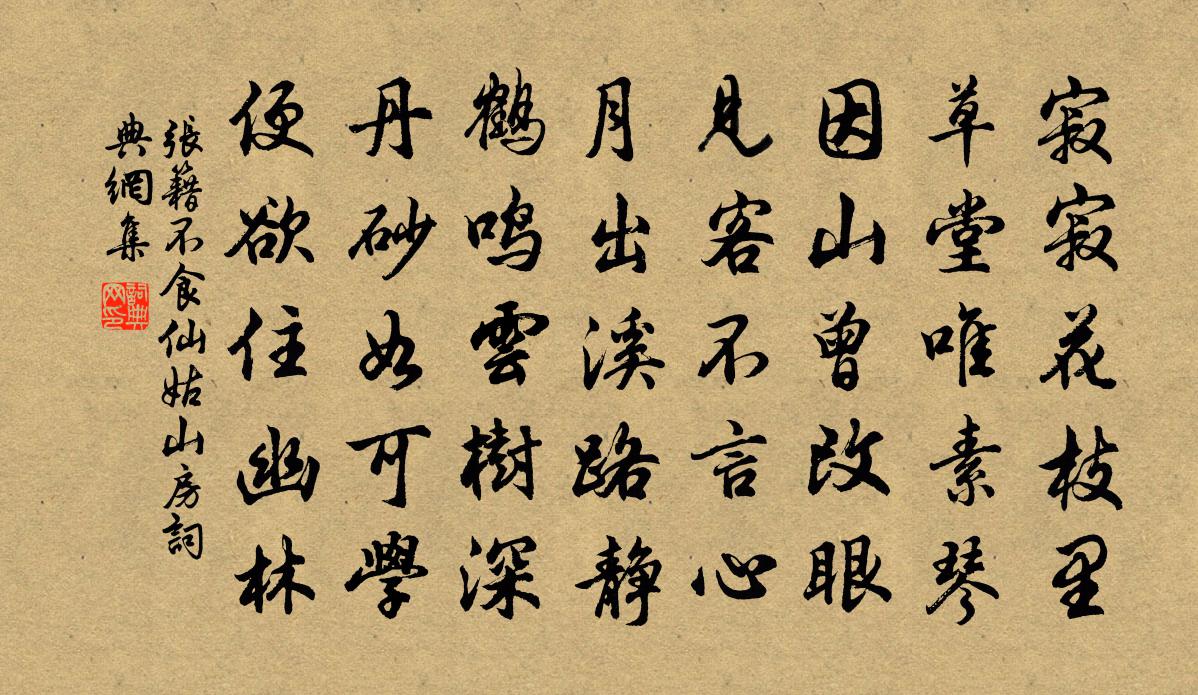 寂寂花枝里
草堂唯素琴
因山曾改眼
见客不言心
月出溪路静
鶴鸣雲樹深
丹砂如可學
便欲住幽林
張籍不食仙姑山房詞
典網集
詞典网印